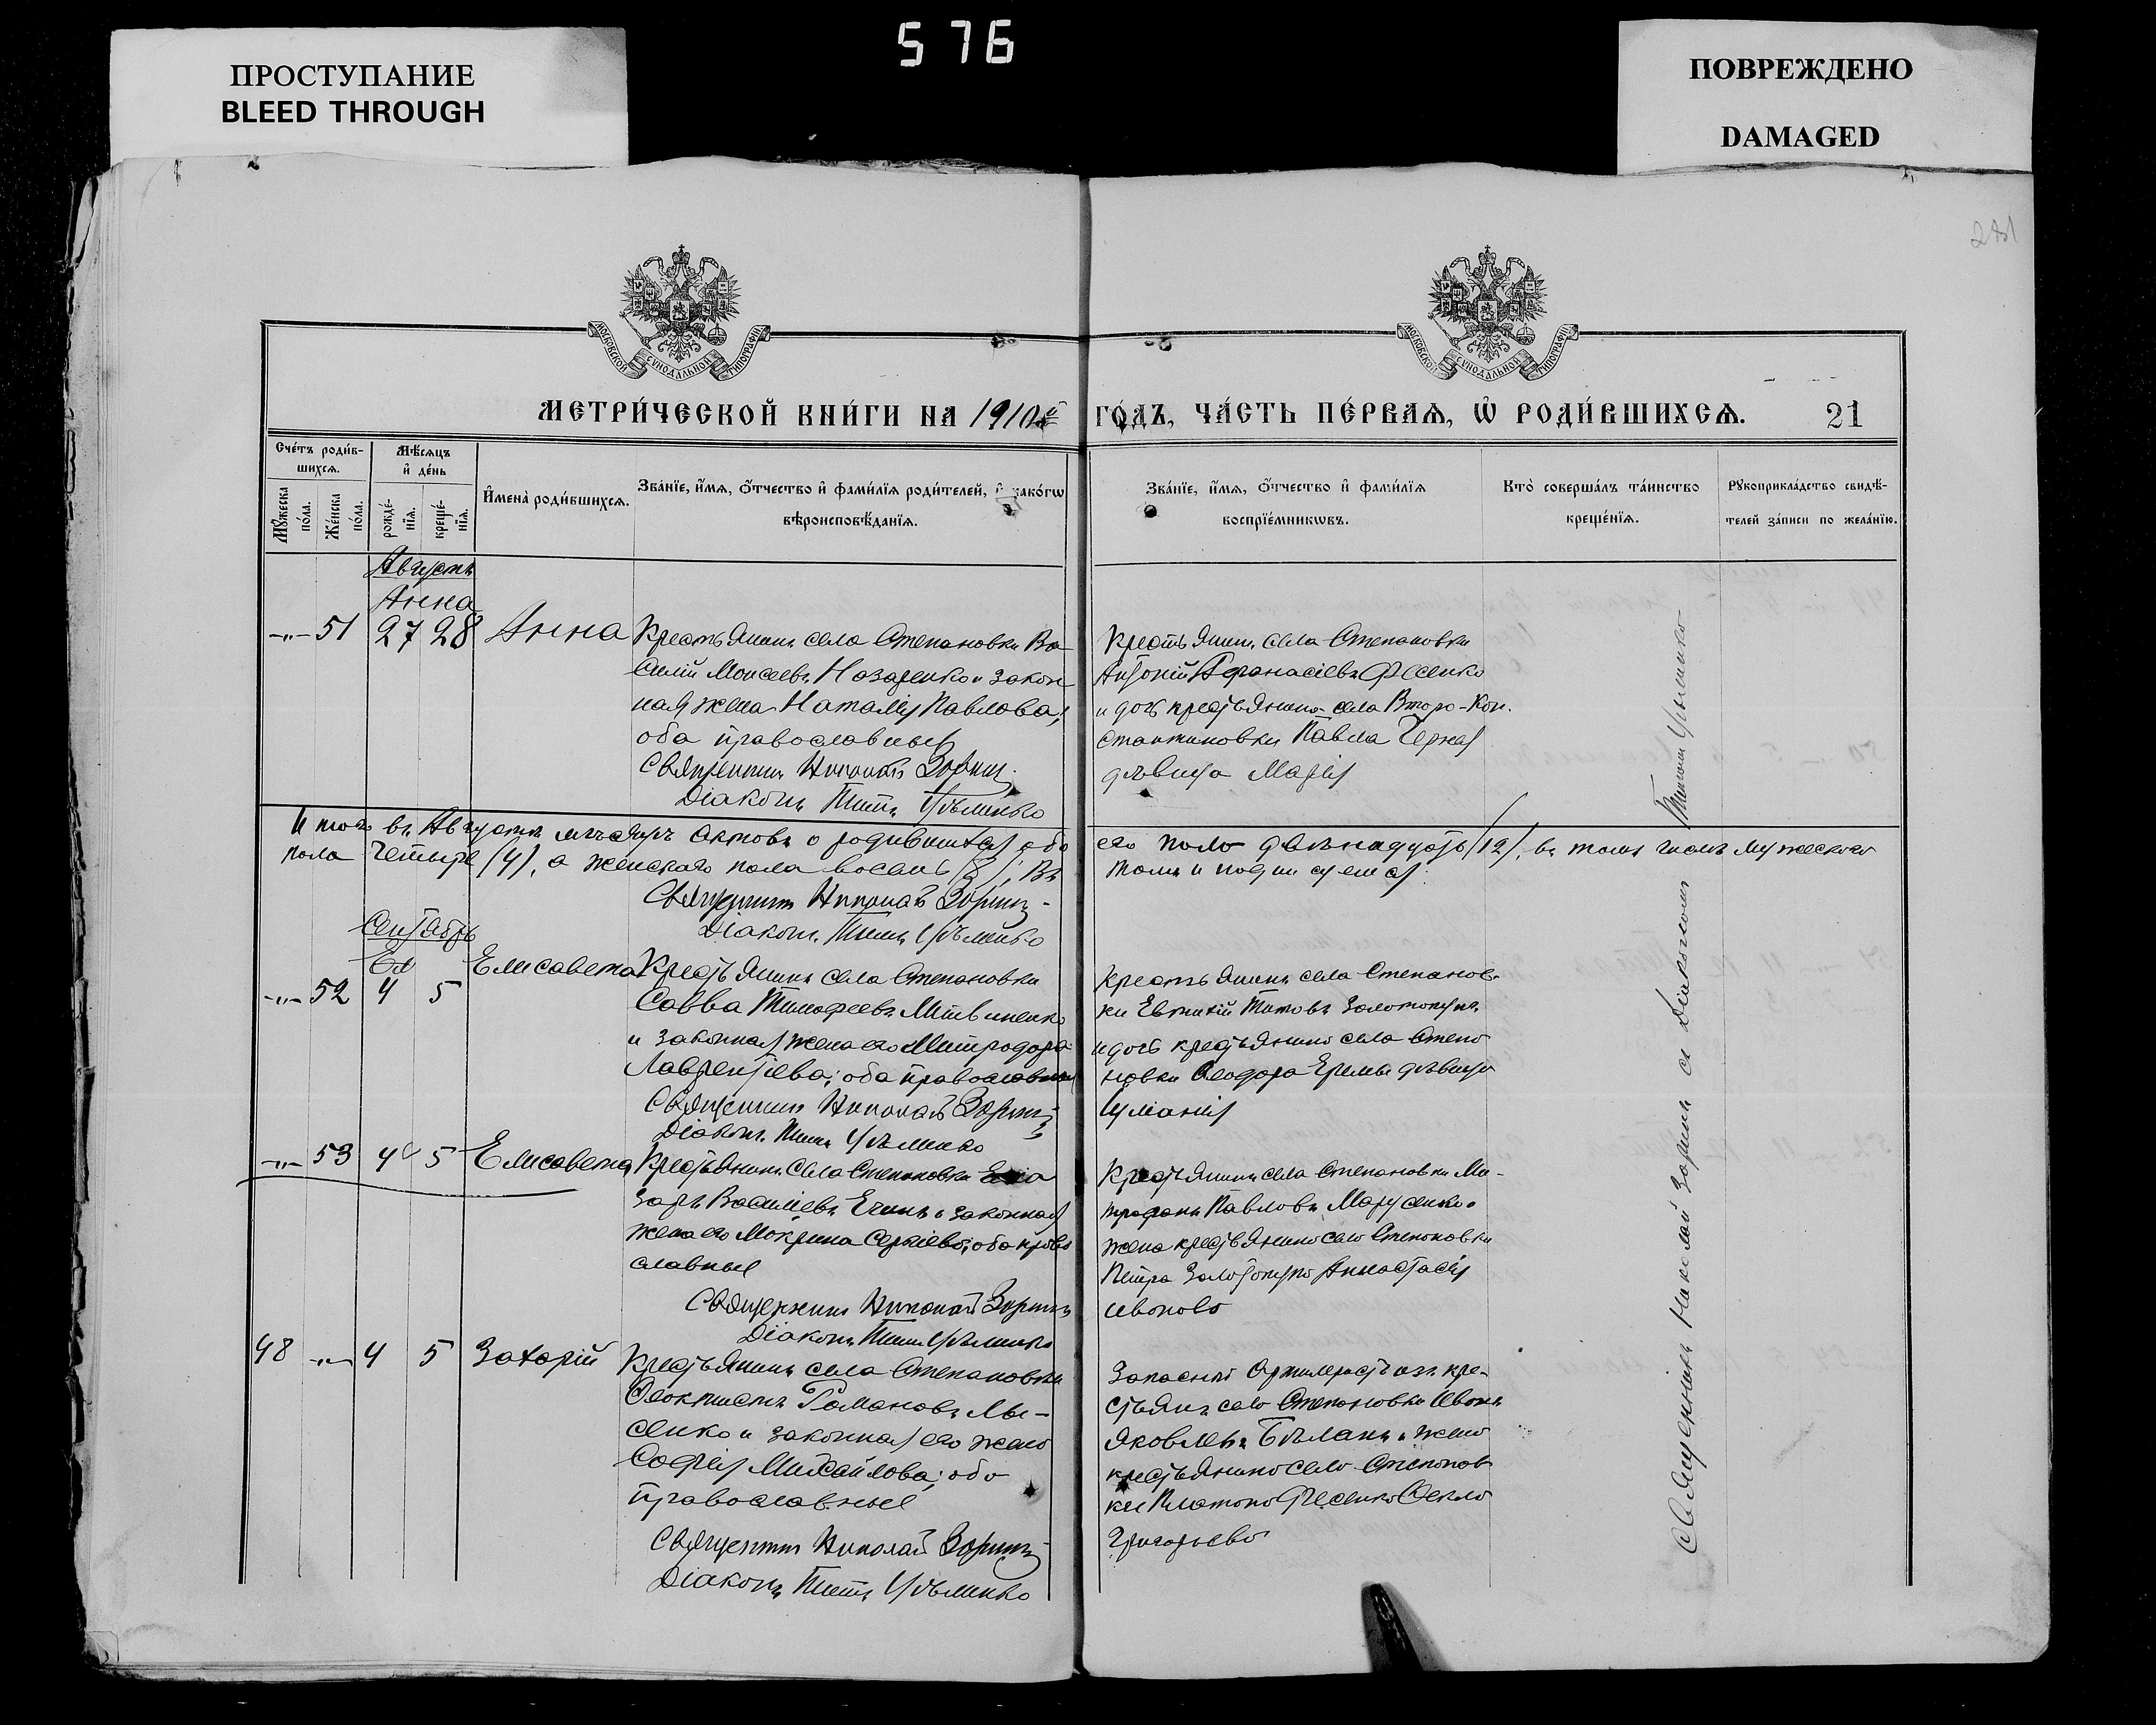 576
ПРОСТУПАНИЕ
BLEED THROUGH
ПОВРЕЖДЕНО
DAMAGED
МОСКОВСКОЙ СУНОДАЛЬНОЙ ТИПОГРАФІИ
МОСКОВСКОЙ СУНОДАЛЬНОЙ ТИПОГРАФІИ
МЕТРИ́ЧЕСКОЙ КНИ́ГИ НА 1910й
ГО́ДЪ, ЧА́СТЬ ПЕ́РВАѦ, Ѽ РОДИ́ВШИХСѦ. 21
Сче́тъ роди́в-
шихсѧ.
Мꙋ́жеска по́ла.
Же́нска по́ла.
Мѣ́сѧцъ
и҆ де́нь
рожде́-нїѧ.
креще́-нїѧ.
И҆мена̀ роди́вшихсѧ.
Зва́нїе, и҆́мѧ, ѻ҆́тчество и҆ фами́лїѧ роди́телей, и҆ како́гѡ
вѣроисповѣ́данїѧ.
Зва́нїе, и҆́мѧ, ѻ҆́тчество и҆ фами́лїѧ
воспрїе́мникѡвъ.
Кто̀ соверша́лъ та́инство
креще́нїѧ.
Рꙋкоприкла́дство свидѣ́-
телей за́писи по жела́нїю.
Августъ
Анна
-"- 51 27 28 Анна
Крестьянинъ села Степановки Ва-
силій Моисеевъ Назаренко и закон
ная жена Наталія Павлова;
оба православные
Священникъ Николай Зоринъ
Діаконъ Титъ
Крестьянинъ села Степановки
Антоній Афанасіевъ Фесенко
и дочь крестьянина села Второ-Кон.
стантиновки Павла
дѣвица Марія
Итого въ Августѣ мѣсяцѣ актовъ о родившихся обо
его пола двѣнадцать (12), въ томъ числѣ мужескаго
пола четыре (4), а женскаго пола восемь (8), Въ
томъ и подписуемся:
Священникъ Николай Зоринъ
Діаконъ Титъ
Сентябрь
Ел
-"- 52 4 5 Елисавета
Крестьянинъ села Степановки
Савва Тимофеевъ Литвиненко
и законная жена его Митродора
Лаврентіева; оба православные
Священникъ Николай Зоринъ
Діаконъ Титъ
Крестьянинъ села Степанов-
ки Евтихій Титовъ Золотопупъ
и дочь крестьянина села Степа
новки Ѳеодора Еремы дѣвица
Іуліанія
-"- 53 4 5 Елисавета
Крестьянинъ села Степановки Елиа
заръ Василіевъ и законная
жена его Мокрина Сергіева; оба право
славные
Священникъ Николай Зоринъ
Діаконъ Титъ
Крестьянинъ села Степановки Ми-
трофанъ Павловъ Марусенко и
жена крестьянина села Степановки
Петра Золотопупа Анастасія
Иванова
48 -"- 4 5 Захарій
Крестьянинъ села Степановки
Ѳеоктистъ Романовъ Лы-
сенко и законная его жена
Софія Михайлова; оба
православные
Священникъ Николай Зоринъ
Діаконъ Титъ
Запасный Артиллеристъ изъ кре-
стьянъ села Степановки Иванъ
Яковлевъ Бѣланъ и жена
крестьянина села Степанов-
ки Платона Фесенко Ѳекла
Григорьева
Священникъ Николай Зоринъ съ Діакономъ Титомъ